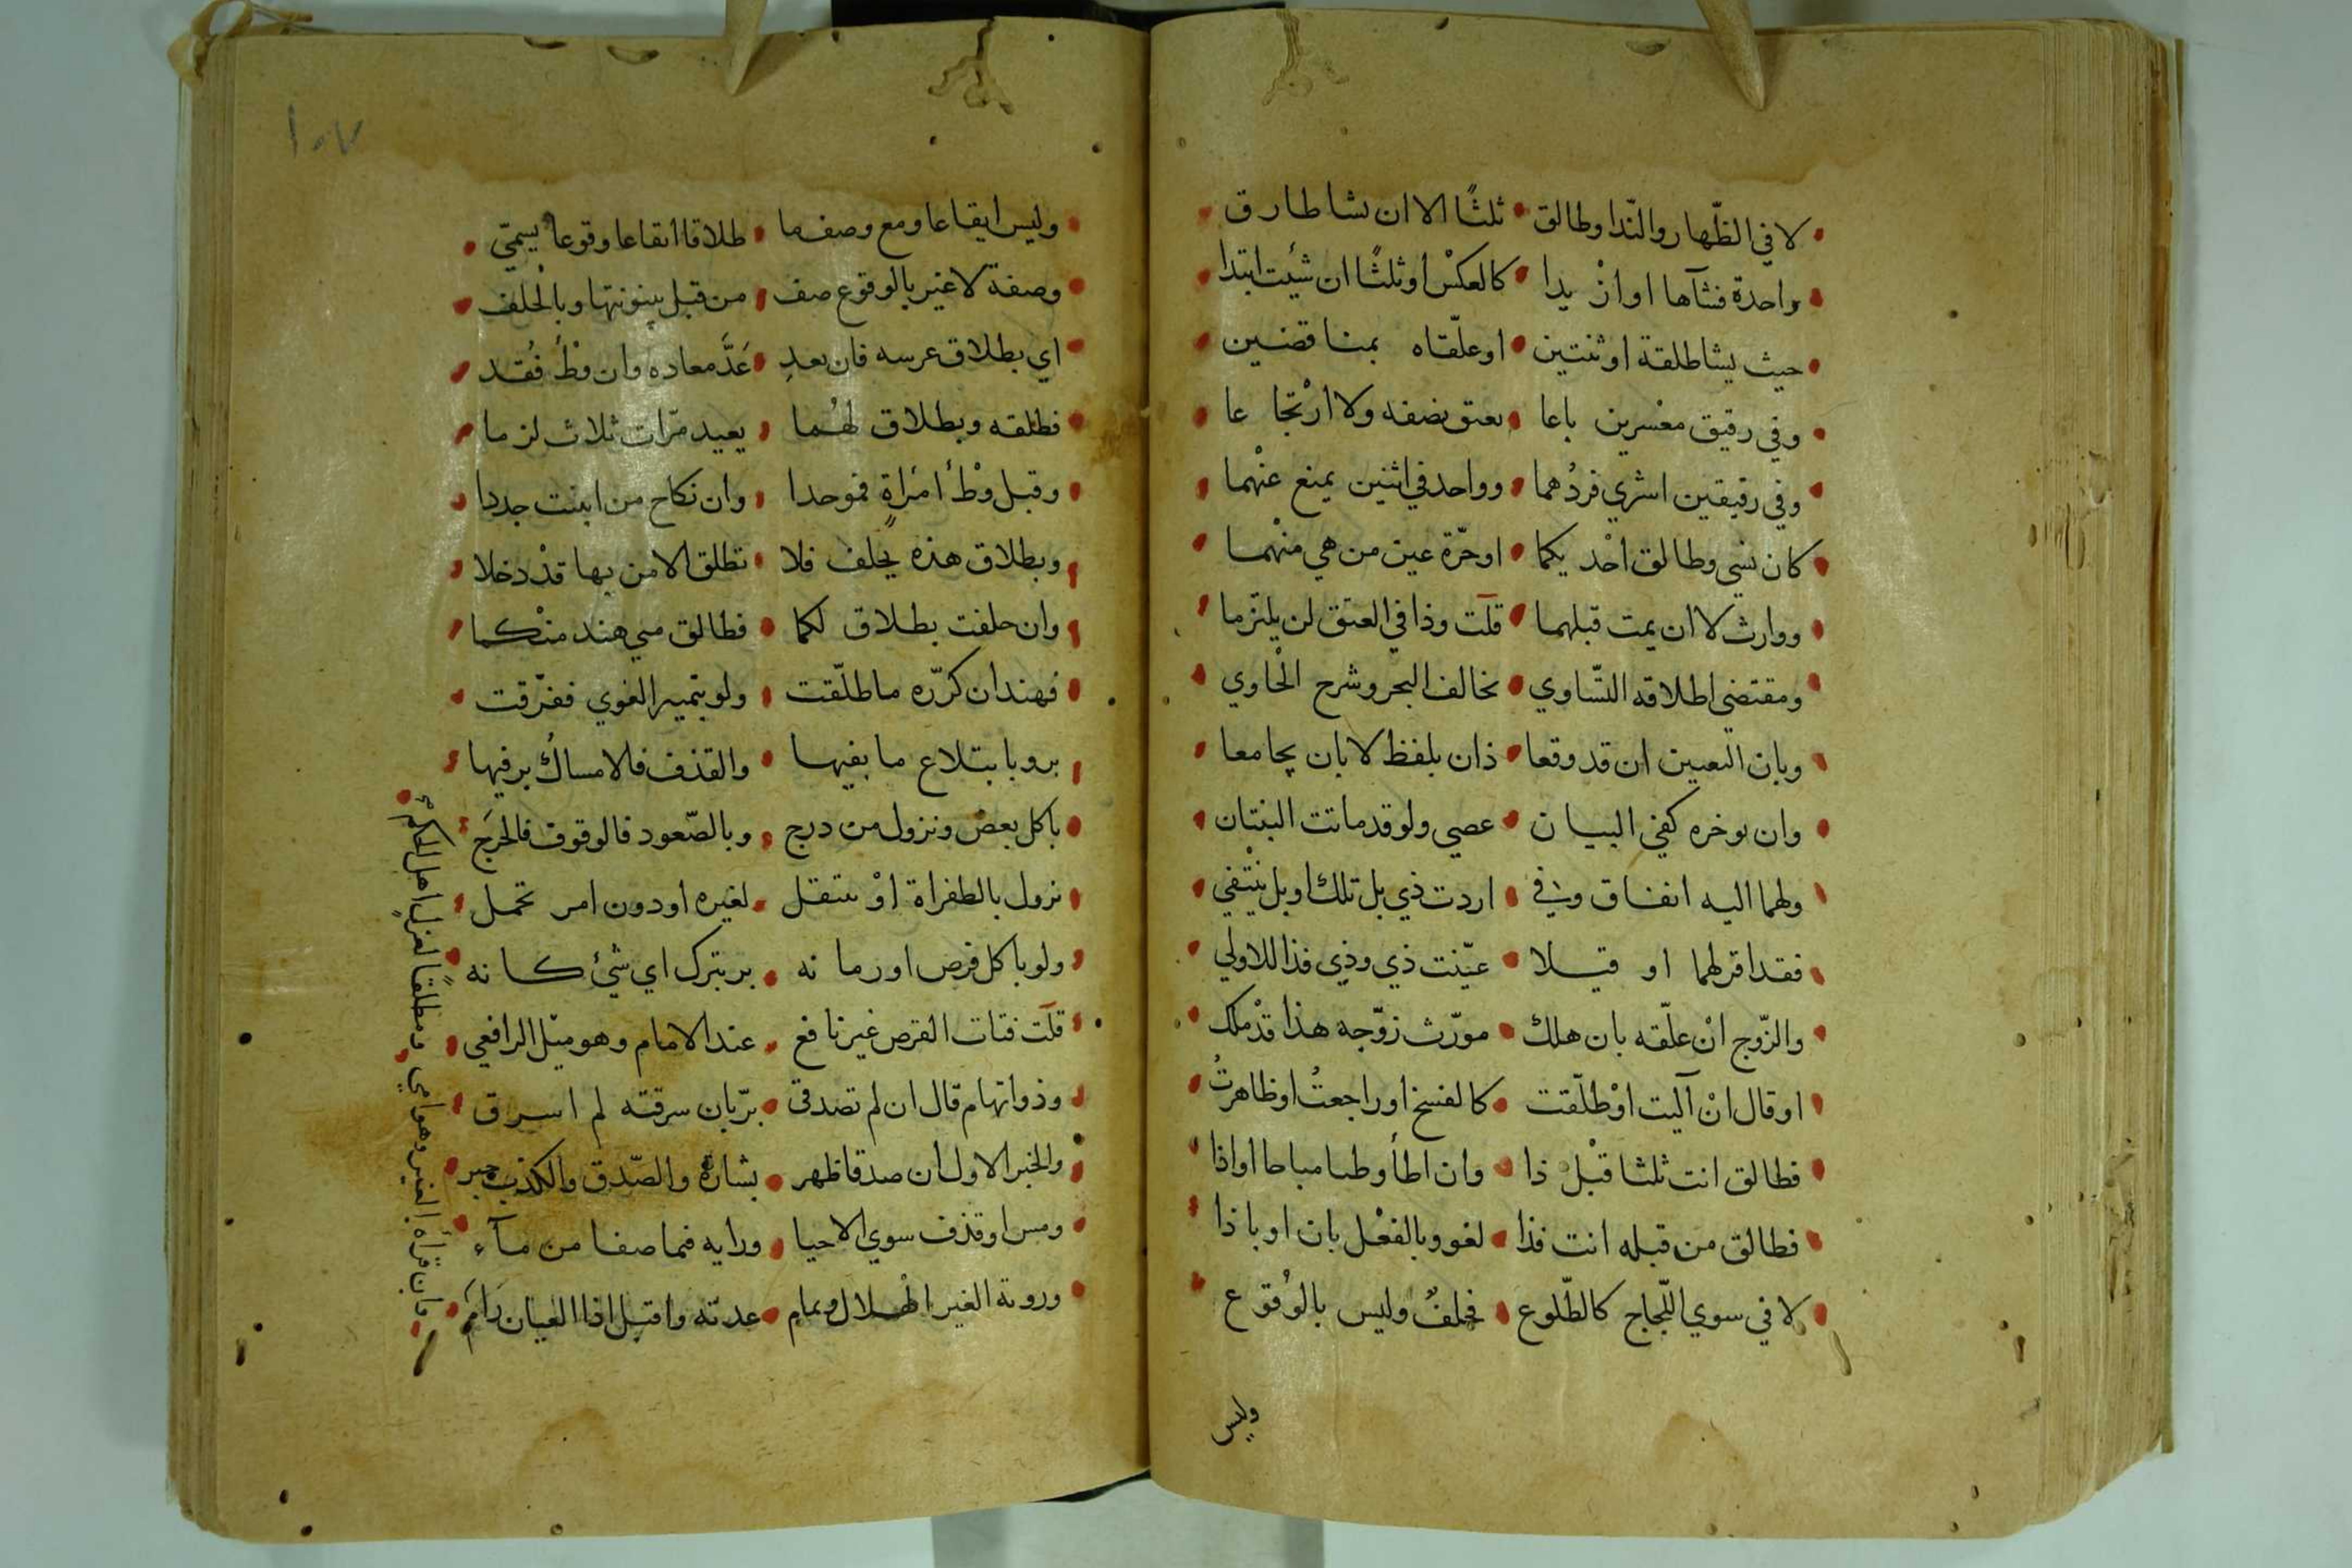 لا في الظّهار والنّدا وطالق • ثلثًا الا ان يشا طارق
واحدة فشآها او ان يدا • كالعكس او ثلثًا ان شئت ابتدا
حيث يشا طلقة او ثنتين • او علّقاه بمناقضين
وفي رقيق معسرين باعا • بعتق نصفه ولا ارتجاعا
وفي رقيقين اشري فردهما • وواحد في اثنين يمنع عنهما
كان نسي وطالق احديكما • او حرّة عين من هي منهما
ووارث لا ان يمت قبلهما • قلت وذا في العتق لن يلتزما
ومقتضى اطلاقه التّساوي • تخالف البحر وشرح الحاوي
وبان التعيين ان قد وقعا • ذان بلفظ لا بان يجامعا
وان يوخره كفي البيان • عصي ولو قد ماتت الثنتان
ولهما اليه انفاق وفي • اردت ذي بل تلك او بل ينتفي
فقد اقر لهما او قيلا • عيّنت ذي وذي فذا للاولي
والزّوج ان علّقه بان هلك • مورّث زوّجه هذا قد ملك
او قال ان آليت او طلّقت • كالفسخ او راجعت او ظاهرت
فطالق انت ثلثا قبل ذا • وان اطأ وطيا مباحا او اذا
فطالق من قبله انت فذا • لغو وبالفعل بان او باذا
لا في سوي اللّجاج كالطّلوع • فحلف وليس بالوقوع
وليس
١٥٧
وليس ايقاعا ومع وصف ما • طلاقا ايقاعا وقوعا يسمّي
وصفة لا غير بالوقوع صف • من قبل بينونتها وبالحلف
اي بطلاق عرسه فان يعد • عدّ معاده وان وطأ فقد
فطلقه وبطلاق لهما • يعيد مرّات ثلاث لزما
وقبل وطأ امرأة فموحدا • وان نكاح من ابنت جددا
وبطلاق هذه يحلف فلا • تطلق الا من بها قد دخلا
وان حلفت بطلاق لكما • فطالق مني هند منكما
فهند ان كرّره ما طلّقت • ولو بتمييز النوي ففرّقت
بر وبابتلاع ما بفيها • والقذف فالامساك بر فيها
باكل بعض ونزول من درج • وبالصّعود فالوقوف فالحرج
نزول بالطفراة او ينتقل • لغيره او دون امر تحمل
ولو باكل قرص او رمانه • بر بترك اي شئ كانه
قلت فتات القرص غير نافع • عند الامام وهو ميل الرافعي
وذو اتهام قال ان لم تصدقي • برّ بان سرقته لم اسرق
والخبر الاول ان صدقا ظهر • بشارة والصّدق والكذب خبر
ومس او قذف سوي الاحيا • ورايه فما صفا من مآء
وروية الغير الهلال وتمام • عدته واقبل اذا العيان رام
وبان قرأه الغير وهو امي • ومطلقا لعزل اهل الحكم